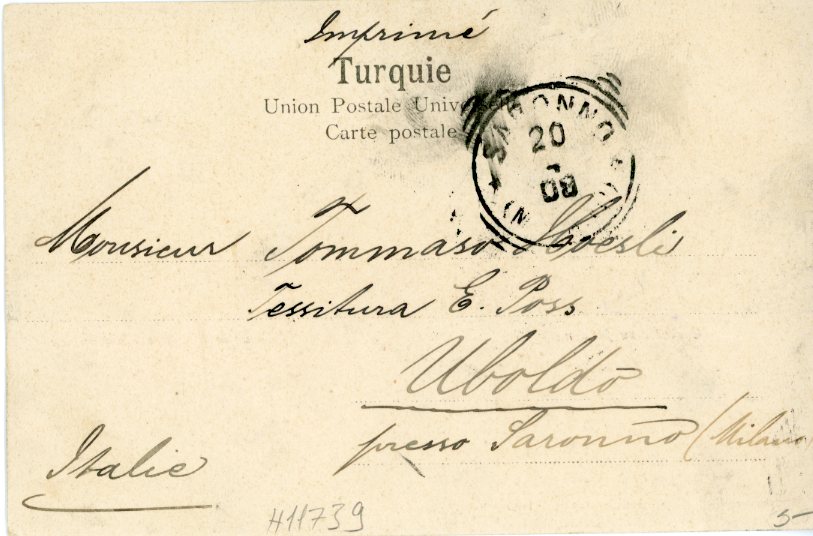 Imprimé
Turquie
Union Postale Universelle
Carte postale
SARONNO
20
08
Monsieur Tommaso Hoesli
Tessitura E. Poss
Uboldo
presso Saronno (Milano)
Italie
H11739
5-